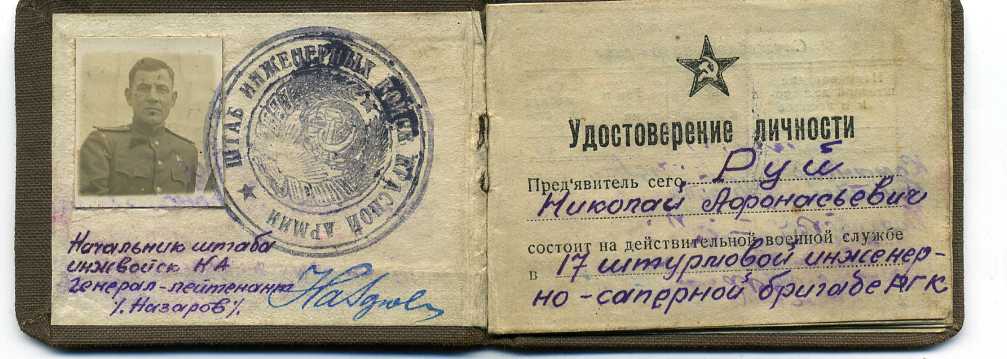 ШТАБ ИНЖЕНЕРНЫХ ВОЙСК КРАСНОЙ АРМИИ
Начальник штаба
инжвойск КА
генерал-лейтенант
/.Назаров/.
Назаров
Удостоверение личности
Пред'явитель сего Руй
Николай Афонасьевич
состоит на действительной военной службе
в 17 штурмовой инженер-
но-саперной бригаде РГК